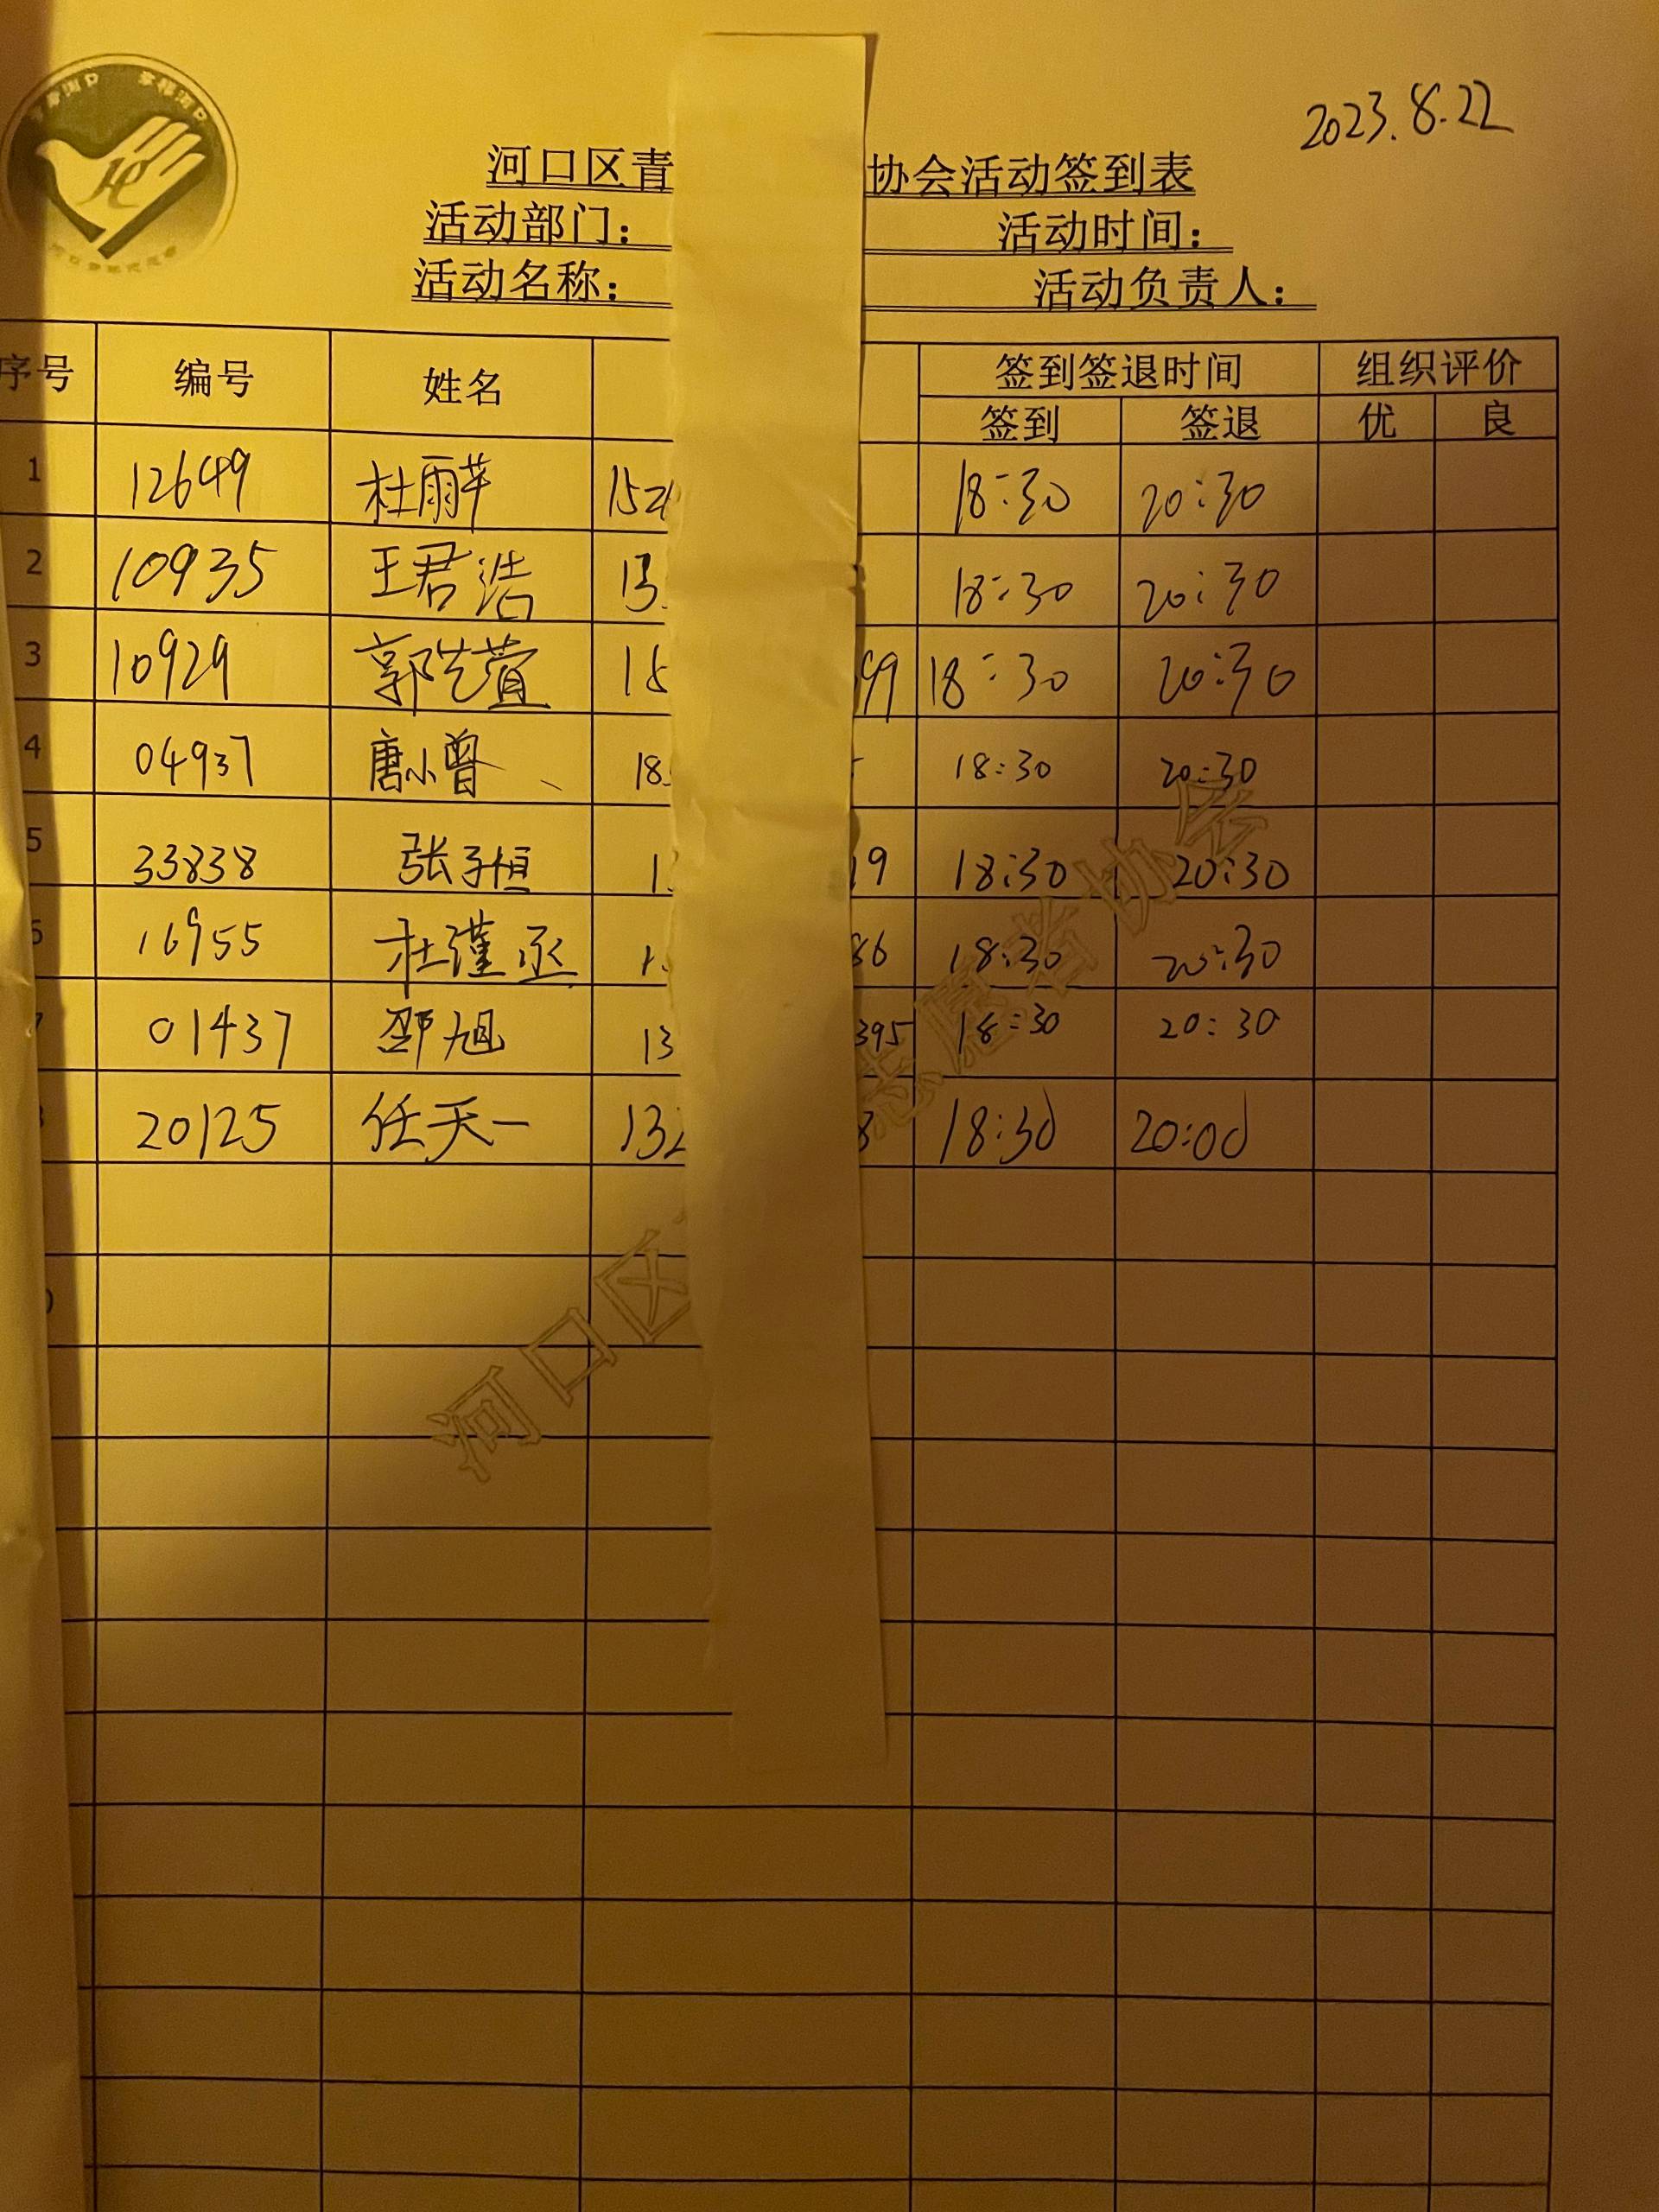 2023.8.22
河口区青 协会活动签到表
活动部门： 活动时间：
活动名称： 活动负责人：
序号 编号 姓名 签到签退时间 组织评价
签到 签退 优 良
1 12649 杜雨芊 152 18:30 20:30
2 10935 王君浩 13 18:30 20:30
3 10929 郭艺萱 18 99 18:30 20:30
4 04937 唐小曾 18 18:30 20:30
5 33838 张子恒 1 19 18:30 20:30
6 16955 杜瑾丞 86 18:30 20:30
01437 邵旭 13 395 18:30 20:30
20125 任天一 132 8 18:30 20:00
河口区 志愿者协会